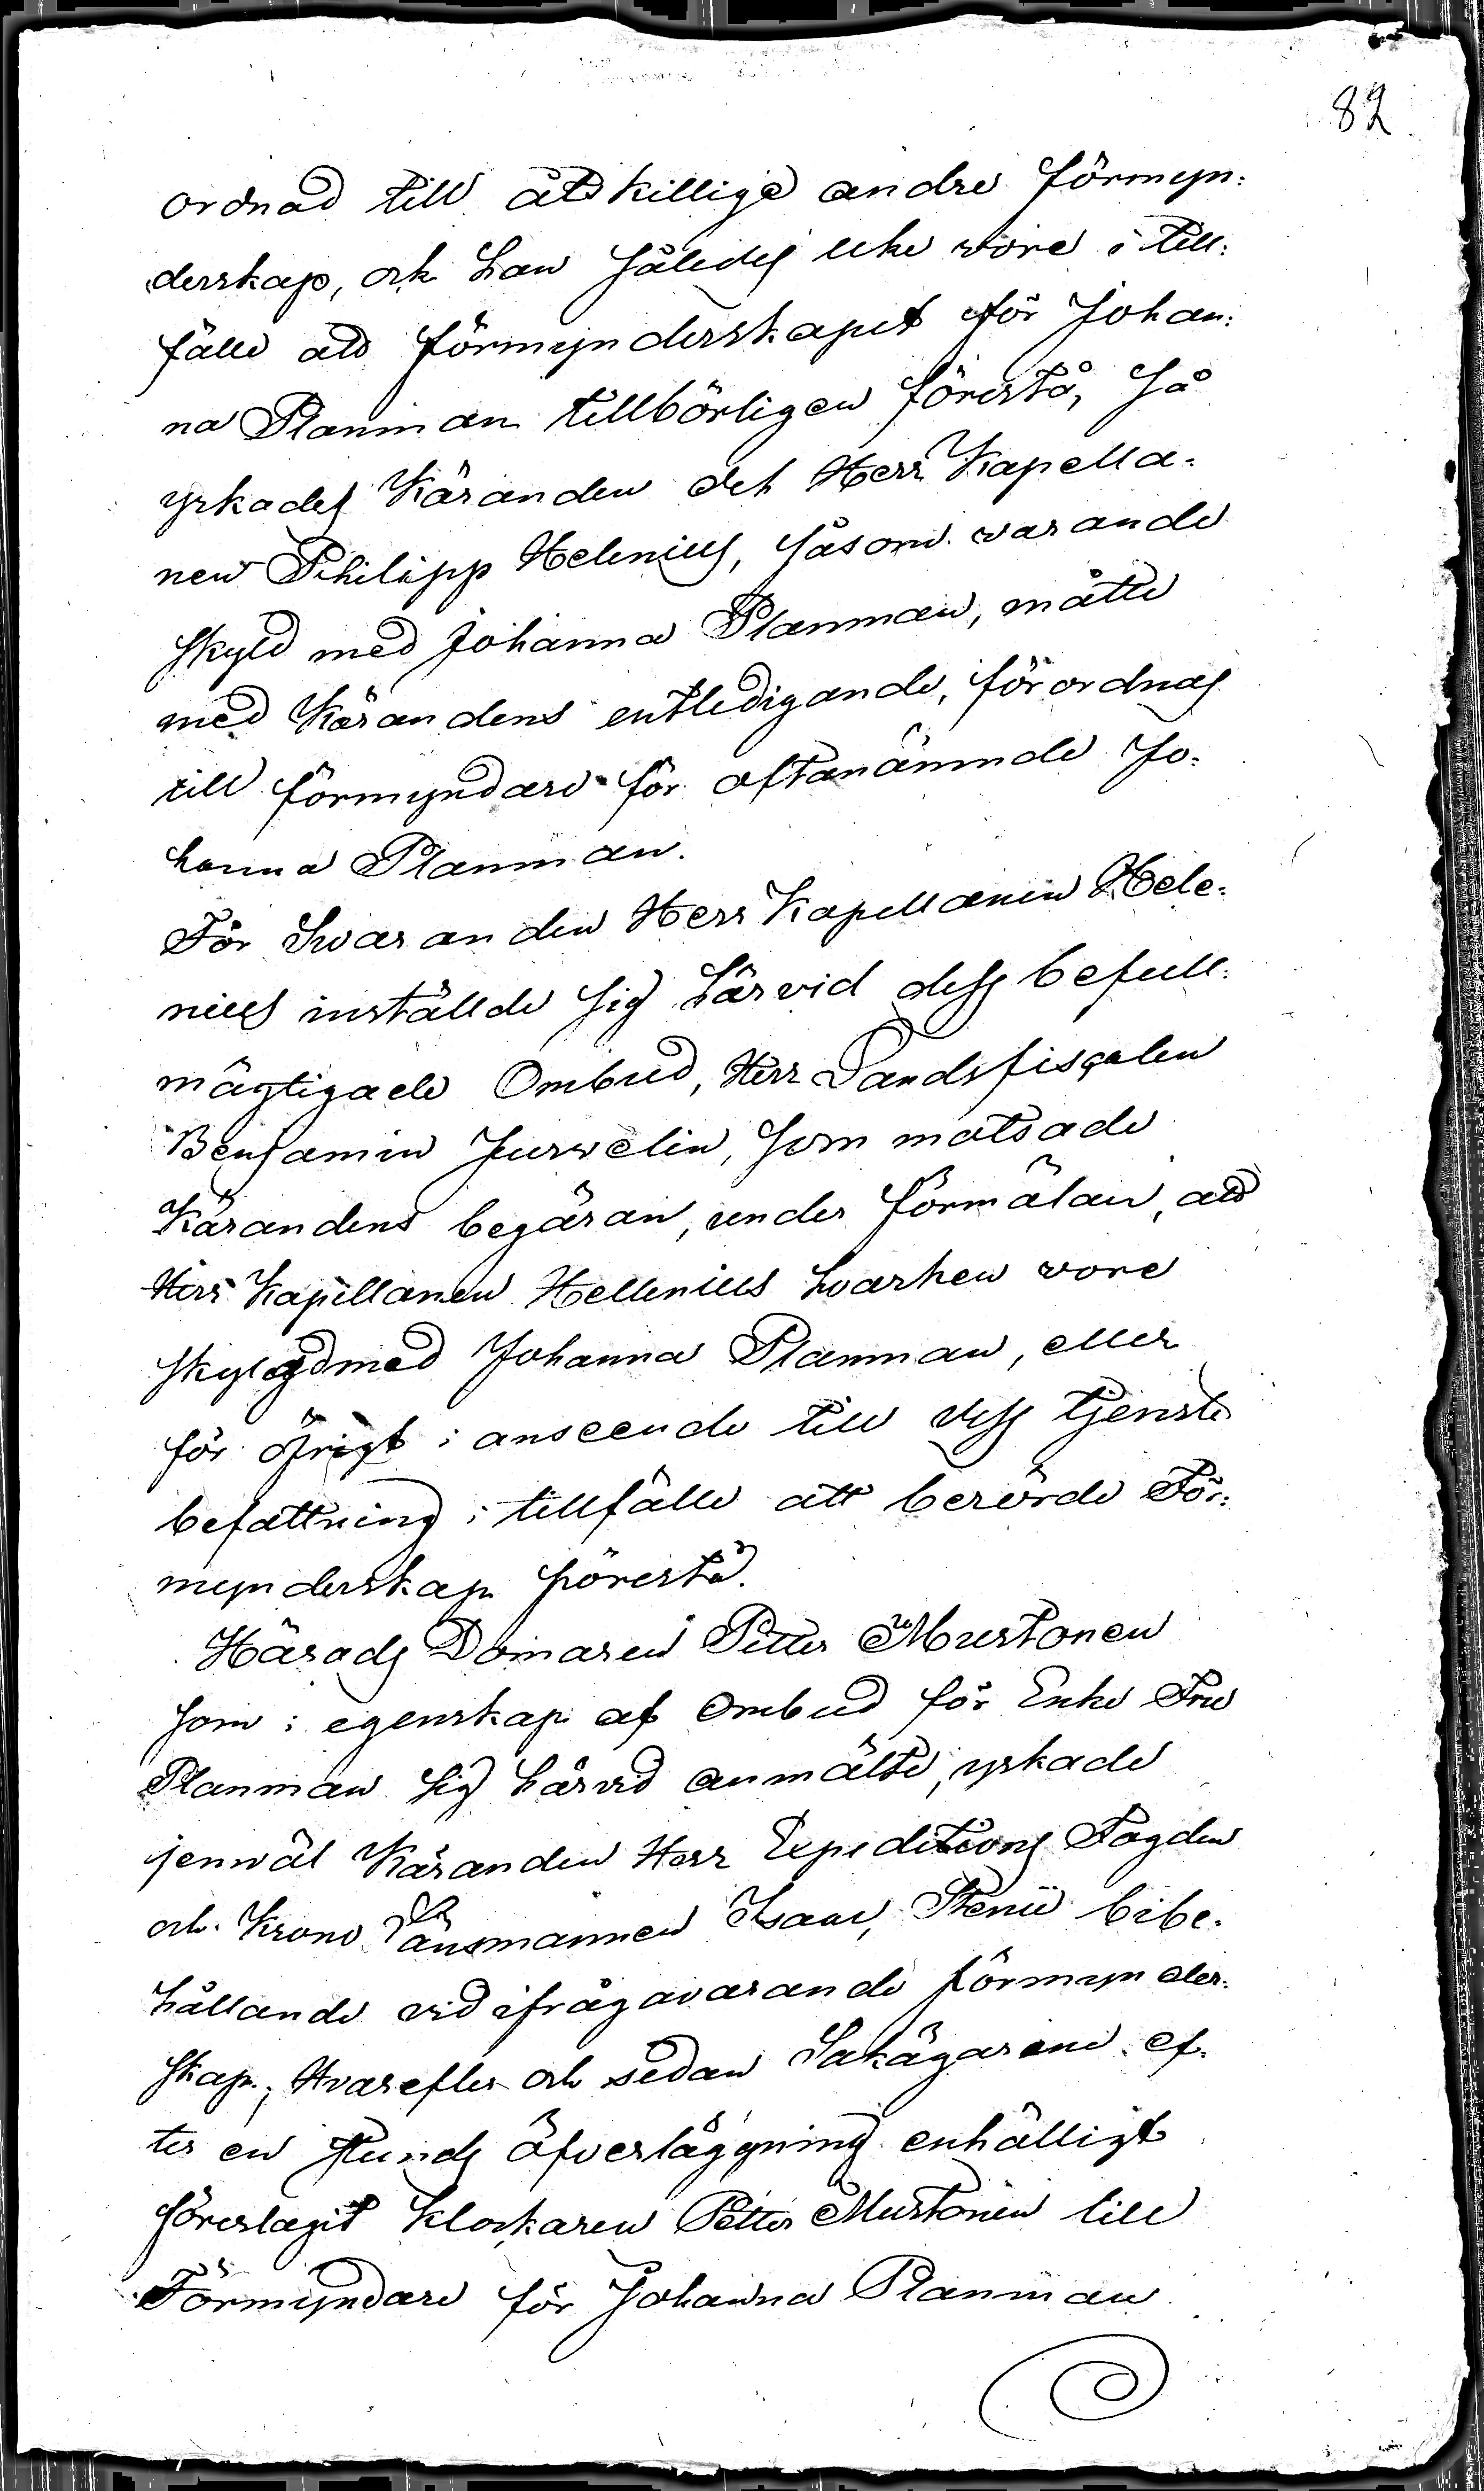 82
ordnad till åtskillige andre förmyn:
derskap, och han således icke wore i till:
fälle att förmynderskapet för Johan:
na Planman tillbörligen förestå, så
yrkades Käranden det Herr Kapella:
nen Philipp Helenius, såsom warande
skyld med Johanna Planman, måtte
med Kärandens entledigande, förordnas
till förmyndare för oftanämnde Jo:
hanna Planman.
För Swaranden Herr Kapellanen Hele:
nius inställde sig härvid dess befull:
mägtigade Ombud, Herr Landsfiscalen
Benjamin Jurvelin, som motsade
Kärandens begäran, under förmälan, att
Herr Kapellanen Hellenius hwarken wore
skyld med Johanna Planman, eller
för öfrigt i anseende till dess tjenste
befattning i tillfälle att berörde För:
mynderskap förestå.
Härads Domaren Petter Mustonen
som i egenskap af Ombud för Enke Fru
Planman sig härvid anmälte, yrkade
jemwäl Käranden Herr Expeditions Fogden
och Krono Länsmannen Isaac Stenii bibe:
hållande vid ifrågavarande förmynder:
skap; Hvarefter och sedan Sakägarene ef:
ter en stunds öfverläggning enhälligt
föreslagit Klockaren Petter Mustonen till
Förmyndare för Johanna Planman